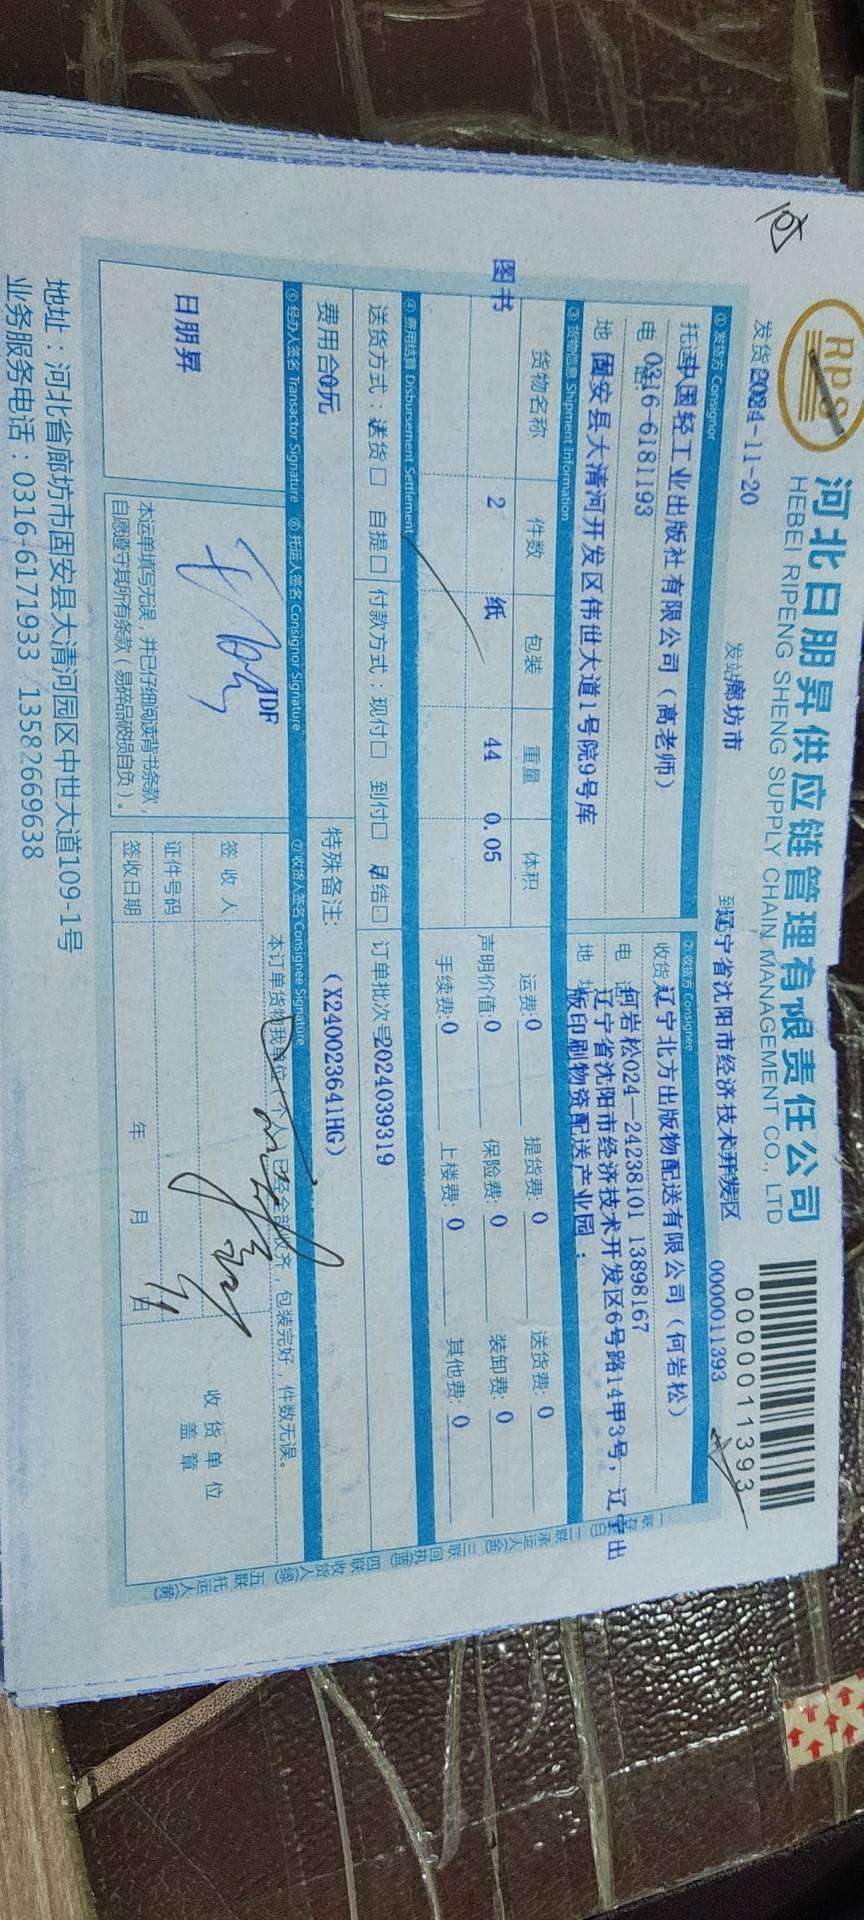 Rps
河北日朋昇供应链管理有限责任公司
HEBEI RIPENG SHENG SUPPLY CHAIN MANAGEMENT CO., LTD
0000011393
发货 2024-11-20 发站 廊坊市 到 辽宁省沈阳市经济技术开发区 0000011393
① 发货方 Consignor
托运 中国轻工业出版社有限公司(高老师)
电 0316-6181193
地 固安县大清河开发区伟世大道1号院9号库
② 收货方 Consignee
收货 辽宁北方出版物配送有限公司(何岩松)
电 何岩松024—24238101 13898167
地 址 辽宁省沈阳市经济技术开发区6号路14甲3号, 辽宁出
版印刷物资配送产业园;
③ 货物信息 Shipment Information
货物名称 件数 包装 重量 体积
图书 2 纸 44 0.05
运费:0 提货费:0 送货费:0
声明价值:0 保险费:0 装卸费:0
手续费:0 上楼费:0 其他费:0
④ 费用结算 Disbursement Settlement
送货方式:送货□ 自提□ 付款方式:现付□ 到付□ 月结□ 订单批次号 2024039319
费用合 0元 特殊备注: (X240023641HG)
⑤ 经办人签名 Transactor Signature ⑥ 托运人签名 Consignor Signature ⑦ 收货人签名 Consignee Signature
日朋昇
JDF
本运单填写无误,并已仔细阅读背书条款,
自愿遵守其所有条款(易碎品破损自负)。
本订单货物我单位(个人)已经全部收齐,包装完好,件数无误。
签收人
证件号码
签收日期 年 月 日
收货单位
盖章
一联存 白 二联承运人 金 三联回执 蓝 四联收货人 绿 五联托运人 黄
地址:河北省廊坊市固安县大清河园区中世大道109-1号
业务服务电话:0316-6171933 13582669638